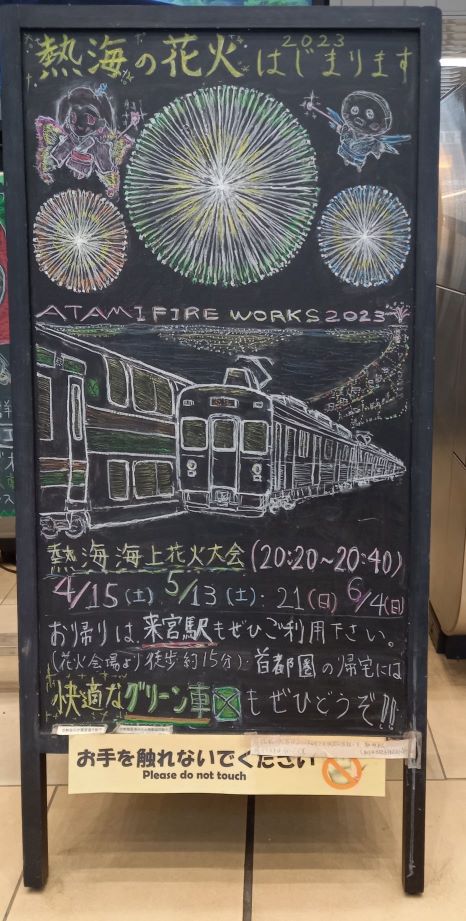 2023
熱海の花火はじまります
ATAMI FIRE WORKS 2023
熱海海上花火大会(20:20~20:40)
4/15(土) 5/13(土)・21(日) 6/4(日)
お帰りは、来宮駅もぜひご利用下さい。
(花火会場より徒歩約15分)・首都圏の帰宅には
快適なグリーン車もぜひどうぞ!!
お手を触れないでください
Please do not touch